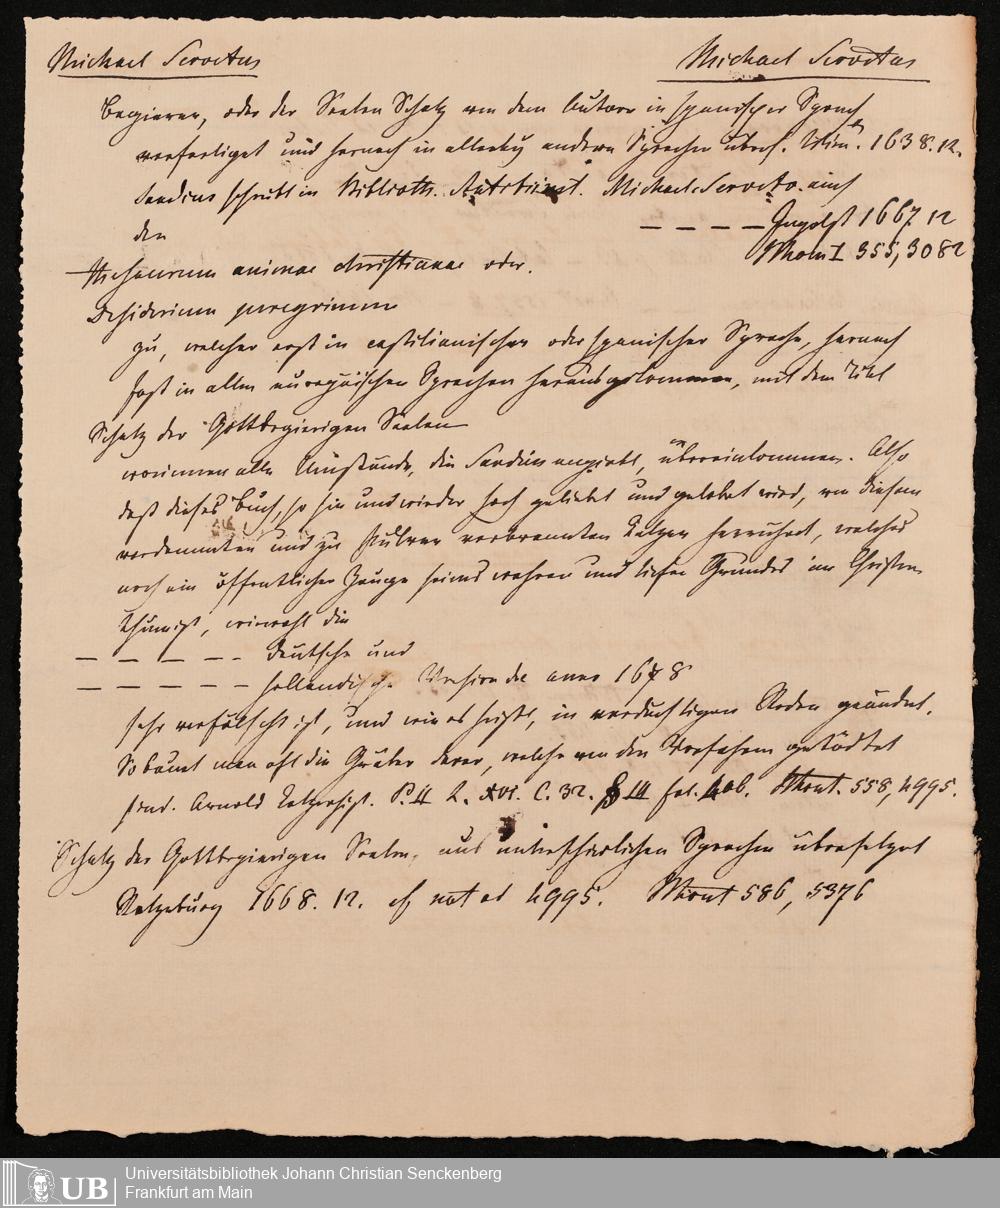 Michael Servetus
Michael Servetus
Begierer, oder der Seelen Schatz von dem Autore in spanischer Sprach
verfertiget und hernach in allerley andere Sprachen übers. 1638. 12.
Sandius schreibt in Biblioth. Antitrinit. Michael Serveto auch
— — — — Ingolst 1667 12
den
Thom I 355, 3082
Thesaurum animae christianae oder.
Desiderium peregrinum
zu, welcher erst in castilianischer oder spanischer Sprache, hernach
fast in allen europäischen Sprachen herausgekommen, mit dem Titel
Schatz der Gottbegierigen Seelen
worinnen alle Umstände, die Sandius angiebt, übereinkommen. Also
daß dieses Buch, so hin und wieder hoch geliebt und gelobet wird, von diesem
verdammten und zu Pulver verbrannten Ketzer herrühret, welches
noch ein öffentlicher Zeuge seines wahren und tiefen Grundes im Christen
thum ist, wiewohl die
— — — — — deutsche und
— — — — — holländische Version de anno 1678
sehr verfälscht ist, und wie es heißt, in verdächtigen Reden geändert.
So bauet man oft die Gräber derer, welche von den Vorfahren getödtet
sind. Arnold Ketzerhist. P. II L. XVI. C. 32. § III fol. 406. Thom. 558, 4995.
Schatz der Gottbegierigen Seelen, aus unterschiedlichen Sprachen übersetzet
Ratzeburg 1668. 12. cf not ad 4995. 586, 5376
UB
Universitätsbibliothek Johann Christian Senckenberg
Frankfurt am Main